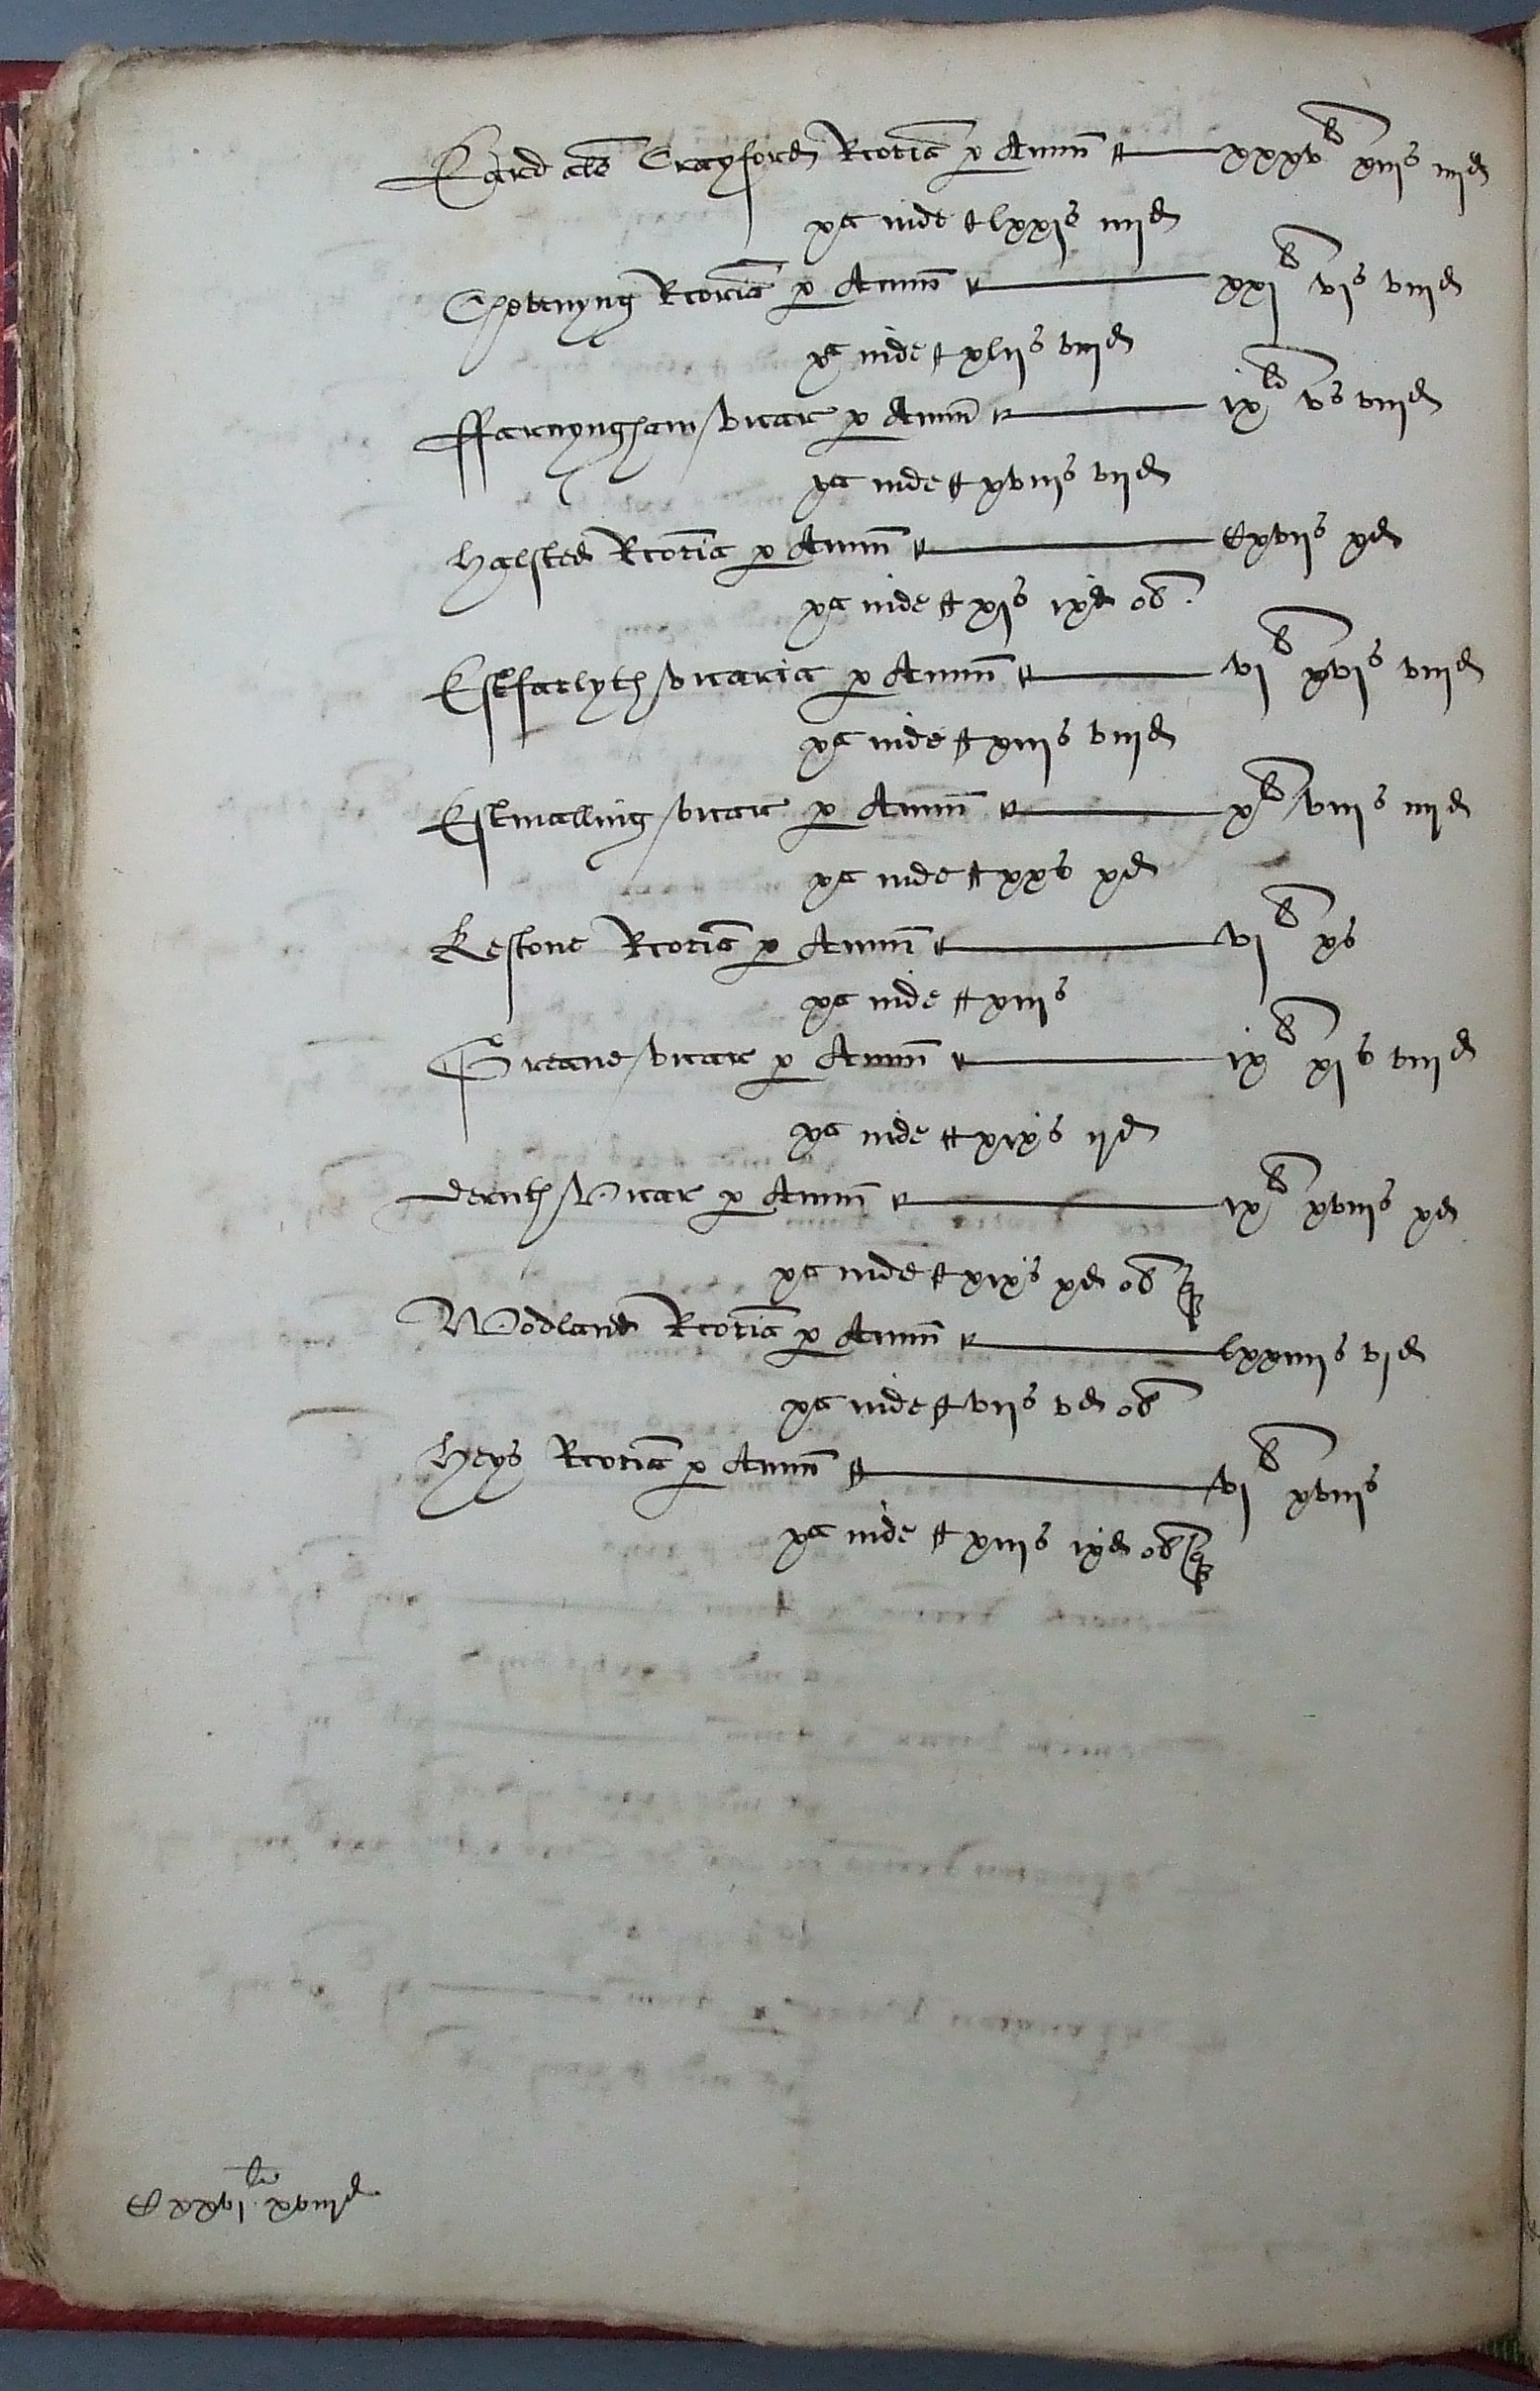 Eard als Crayford Rcoria p Annu xxxvli xiijs iiijd
xa inde lxxjs iiijd
Chevenyng Rcoria p Annu xxjli vjs viijd
xa inde xlijs viijd
ffarnyngham vicar p Annu ixli vs viijd
xa inde xviijs vijd
Halsted Rcoria p Annu Cxvijs xd
xa inde xjs ixd ob
Estfarlygh vicaria p Annu vjli xvjs viijd
xa inde xiijs viijd
Estmalling vicar p Annu xli viijs iiijd
xa inde xxs xd
Kestone Rcoria p Annu vjli xs
xa inde xiijs
Greane vicar p Annu ixli xjs viijd
xa inde xixs ijd
dernth Vicar p Annu ixli xviijs xd
xa inde xixs xd ob q
Wodland Rcoria p Annu lxxiiijs vjd
xa inde vijs vd ob
Heys Rcoria p Annu vjli xviijs
xa inde xiijs ixd ob q
xxvjli xviijd